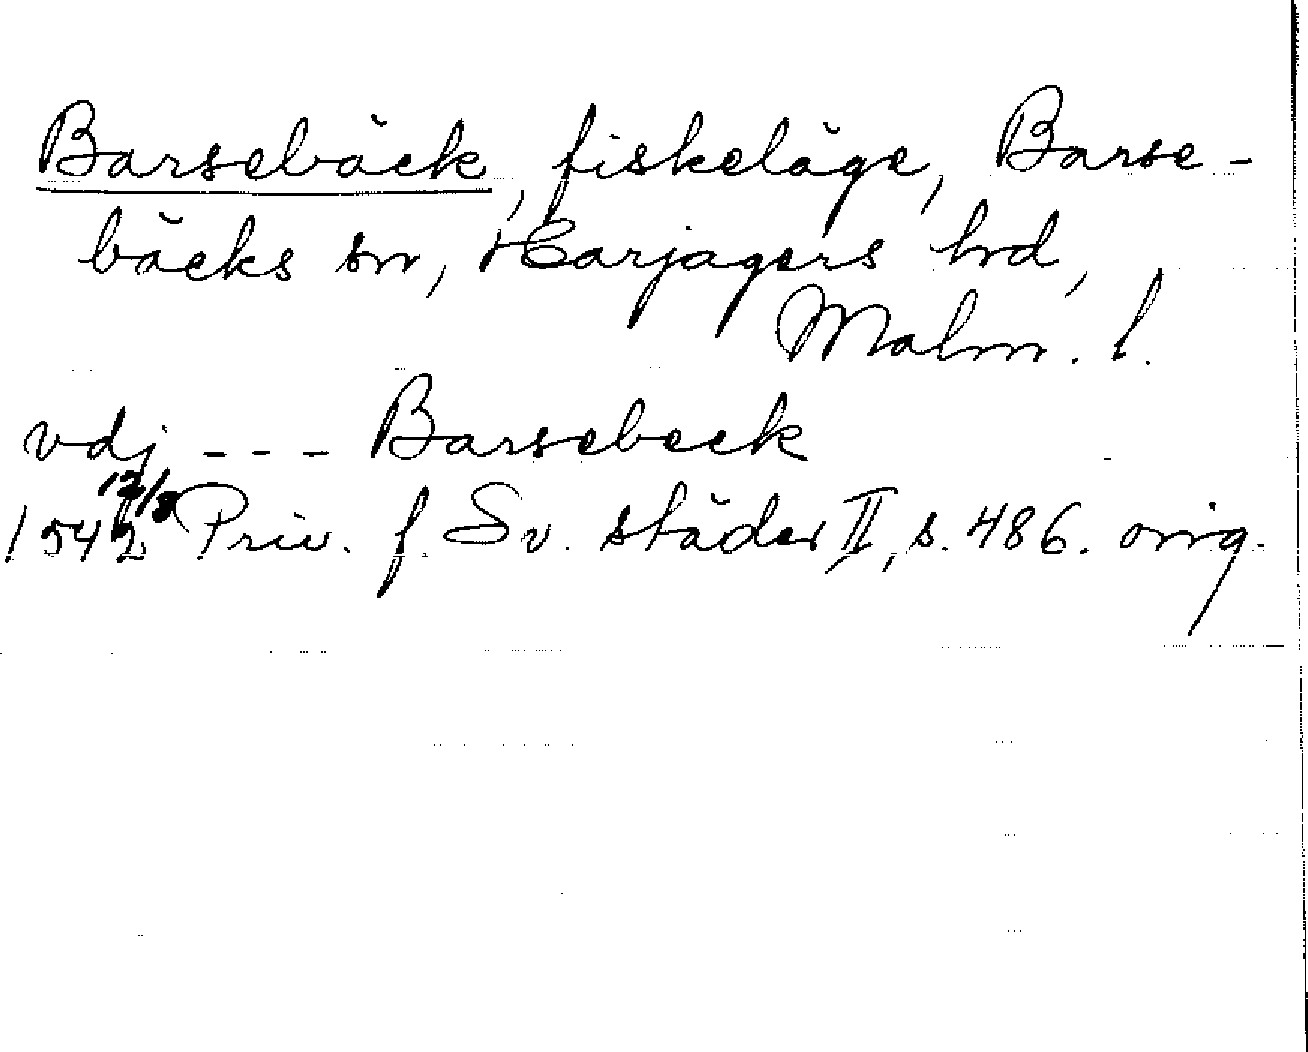 Barsebäck, fiskeläge, Barse-
bäcks sn, Harjagers hd,
Malm. l.
vdj --- Barsebeck
12/8
1542 Priv. f. Sv. städer II, s. 486. orig.